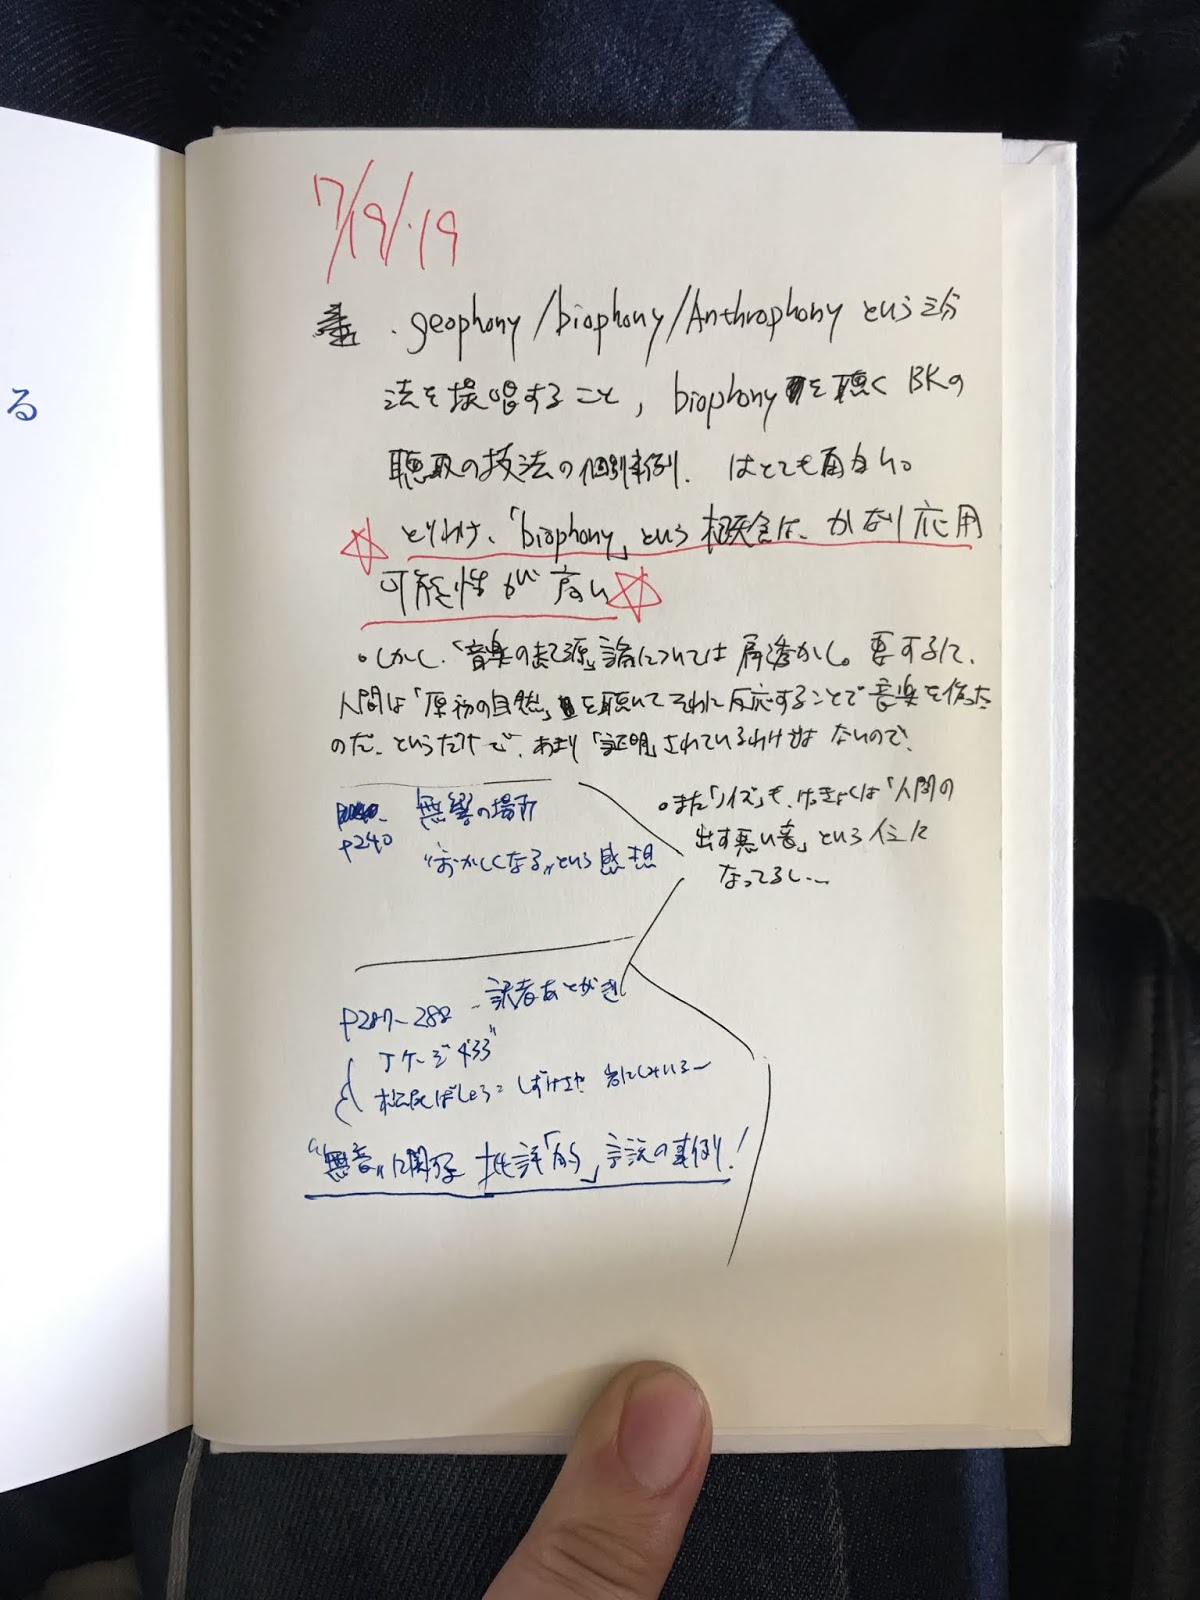 る
7/19/'19
・geophony/biophony/Anthrophonyという三分
法を提唱すること, biophonyを聴くBKの
聴取の技法の個別事例. はとても面白い。
☆とりわけ、「biophony」という概念は、かなり応用
可能性が高い☆
。しかし、「音楽の起源」論については肩透かし。要するに、
人間は「原初の自然」を聴いてそれに反応することで音楽を作った
のだ、というだけで、あまり「証明」されているわけではないので、
。また「ノイズ」も、けっきょくは「人間の
出す悪い音」という位に
なってるし...
p240
無響の場所
"おかしくなる"という感想
p287-288 - 訳者あとがき
Jケージ"4'33"
松尾ばしょう: しずけさや 岩にしみいるー
"無音"に関する批評「的」言説の事例!